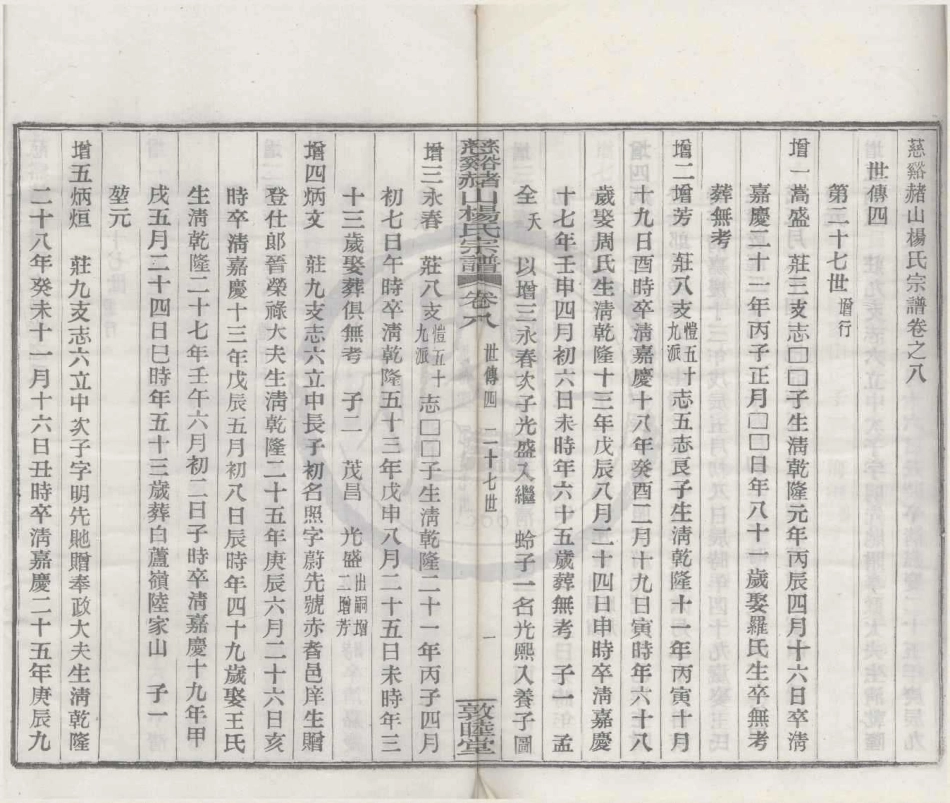 慈谿赭山楊氏宗譜卷之八
世傳四
第二十七世增行
增一嵩盛 莊三支志□□子生淸乾隆元年丙辰四月十六日卒淸
嘉慶二十一年丙子正月□□日年八十一歲娶羅氏生卒無考
葬無考
增二增芳 莊八支愷五十九派志五志良子生淸乾隆十一年丙寅十月
十九日酉時卒淸嘉慶十八年癸酉二月十九日寅時年六十八
歲娶周氏生淸乾隆十三年戊辰八月二十四日申時卒淸嘉慶
十七年壬申四月初六日未時年六十五歲葬無考 子一 孟
全夭 以增三永春次子光盛入繼 蛉子一名光熙入養子圖
慈谿赭山楊氏宗譜 卷八 世傳四 二十七世 一 敦睦堂
增三永春 莊八支愷五十九派志□□子生淸乾隆二十一年丙子四月
初七日午時卒淸乾隆五十三年戊申八月二十五日未時年三
十三歲娶葬俱無考 子二 茂昌 光盛出嗣增二增芳
增四炳文 莊九支志六立中長子初名照字蔚先號赤耆邑庠生贈
登仕郞晉榮祿大夫生淸乾隆二十五年庚辰六月二十六日亥
時卒淸嘉慶十三年戊辰五月初八日辰時年四十九歲娶王氏
生淸乾隆二十七年壬午六月初二日子時卒淸嘉慶十九年甲
戌五月二十四日巳時年五十三歲葬白蘆嶺陸家山 子一
堃元
增五炳烜 莊九支志六立中次子字明先貤贈奉政大夫生淸乾隆
二十八年癸未十一月十六日丑時卒淸嘉慶二十五年庚辰九